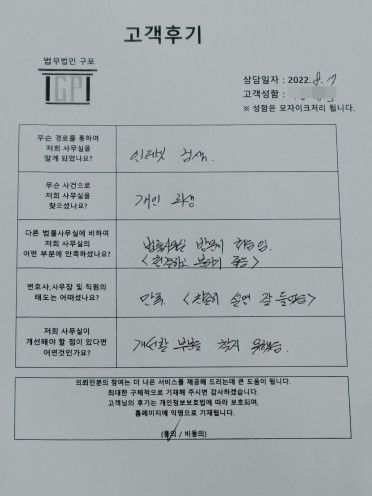 고객후기
법무법인 구포
GP
상담일자 : 2022. 8. 7
고객성함 :
※ 성함은 모자이크처리 됩니다.
무슨 경로를 통하여
저희 사무실을
알게 되었나요?
인터넷 검색.
무슨 사건으로
저희 사무실을
찾으셨나요?
개인 회생
다른 법률사무실에 비하여
저희 사무실의
어떤 부분에 만족하셨나요?
법률사무실 방문이 처음임.
<친절하고 분위기 좋음>
변호사,사무장 및 직원의
태도는 어떠셨나요?
만족. <친절히 설명 잘 들었음>
저희 사무실이
개선해야 할 점이 있다면
어떤것인가요?
개선할 부분을 찾지 못했음.
의뢰인분의 참여는 더 나은 서비스를 제공해 드리는데 큰 도움이 됩니다.
최대한 구체적으로 기재해 주시면 감사하겠습니다.
고객님의 후기는 개인정보보호법에 따라 보호되며,
홈페이지에 익명으로 기재됩니다.
(동의 / 비동의)